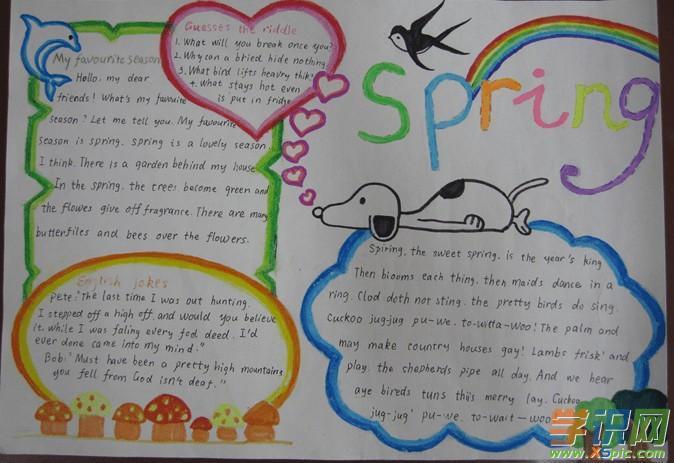 My favourite season
Hello, my dear
friends! What's my favourite
season? Let me tell you. My favourite
season is spring. Spring is a lovely season,
I think. There is a garden behind my house.
In the spring, the trees become green and
the flowes give off fragrance. There are many
butterfiles and bees over the flowers.
Guesses the riddle
1. What will you break once you?
2. Why con a bried hide nothing
3. What bird lifts heavry thik
4. What stays hot even
is put in fridge
Spring
English jokes
Pete: "The last time I was out hunting.
I stepped off a high off, and would you believe
it, while I was faling every fod deed. I'd
ever done came into my mind."
Bob: "Must have been a pretty high mountains
you fell from God isn't deaf."
Spiring, the sweet spring, is the year's king
Then blooms each thing, then maids dance in a
ring. Clod doth not sting. the pretty birds do sing.
Cuckoo jug-jug pu-we. to-witta-Woo! The palm and
may make country houses gay! Lambs frisk' and
play. the shepherds pipe all day. And we hear
aye bireds tuns this merry lay. Cuckoo
jug-jug' pu-we. to-wait-woo
学识网
www.XSpic.com